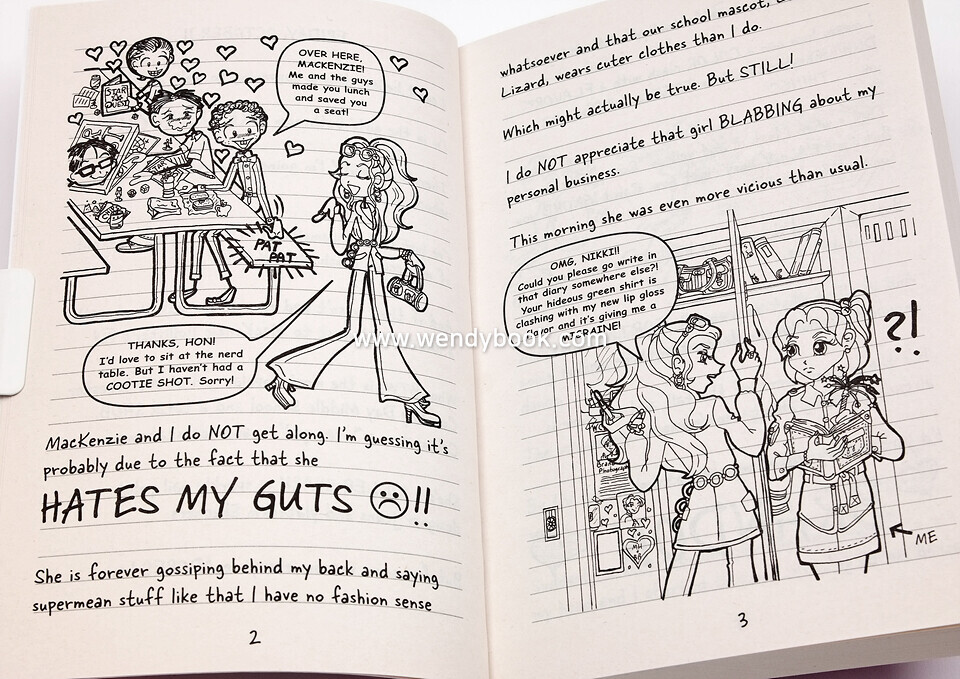 OVER HERE,
MACKENZIE!
Me and the guys
made you lunch
and saved you
a seat!
STAR
QUEST
PAT
PAT
THANKS, HON!
I'd love to sit at the nerd
table. But I haven't had a
COOTIE SHOT. Sorry!
MacKenzie and I do NOT get along. I'm guessing it's
probably due to the fact that she
HATES MY GUTS ☹!!
She is forever gossiping behind my back and saying
supermean stuff like that I have no fashion sense
2
whatsoever and that our school mascot,
Lizard, wears cuter clothes than I do.
Which might actually be true. But STILL!
I do NOT appreciate that girl BLABBING about my
personal business.
This morning she was even more vicious than usual.
OMG, NIKKI!!
Could you please go write in
that diary somewhere else?!
Your hideous green shirt is
clashing with my new lip gloss
flavor and it's giving me a
MIGRAINE!
?!
Photograph
MH
ME
3
www.wendybook.com